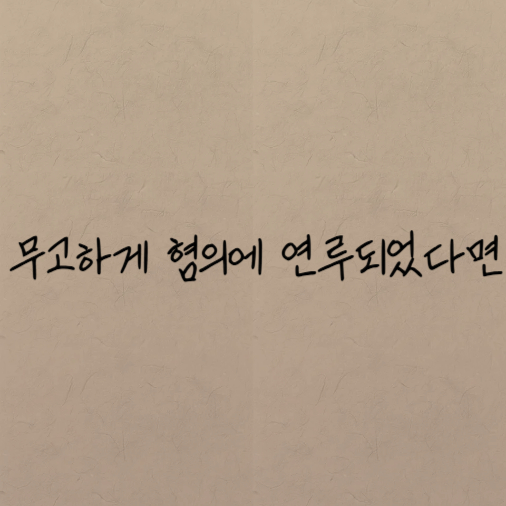 무고하게 혐의에 연루되었다면